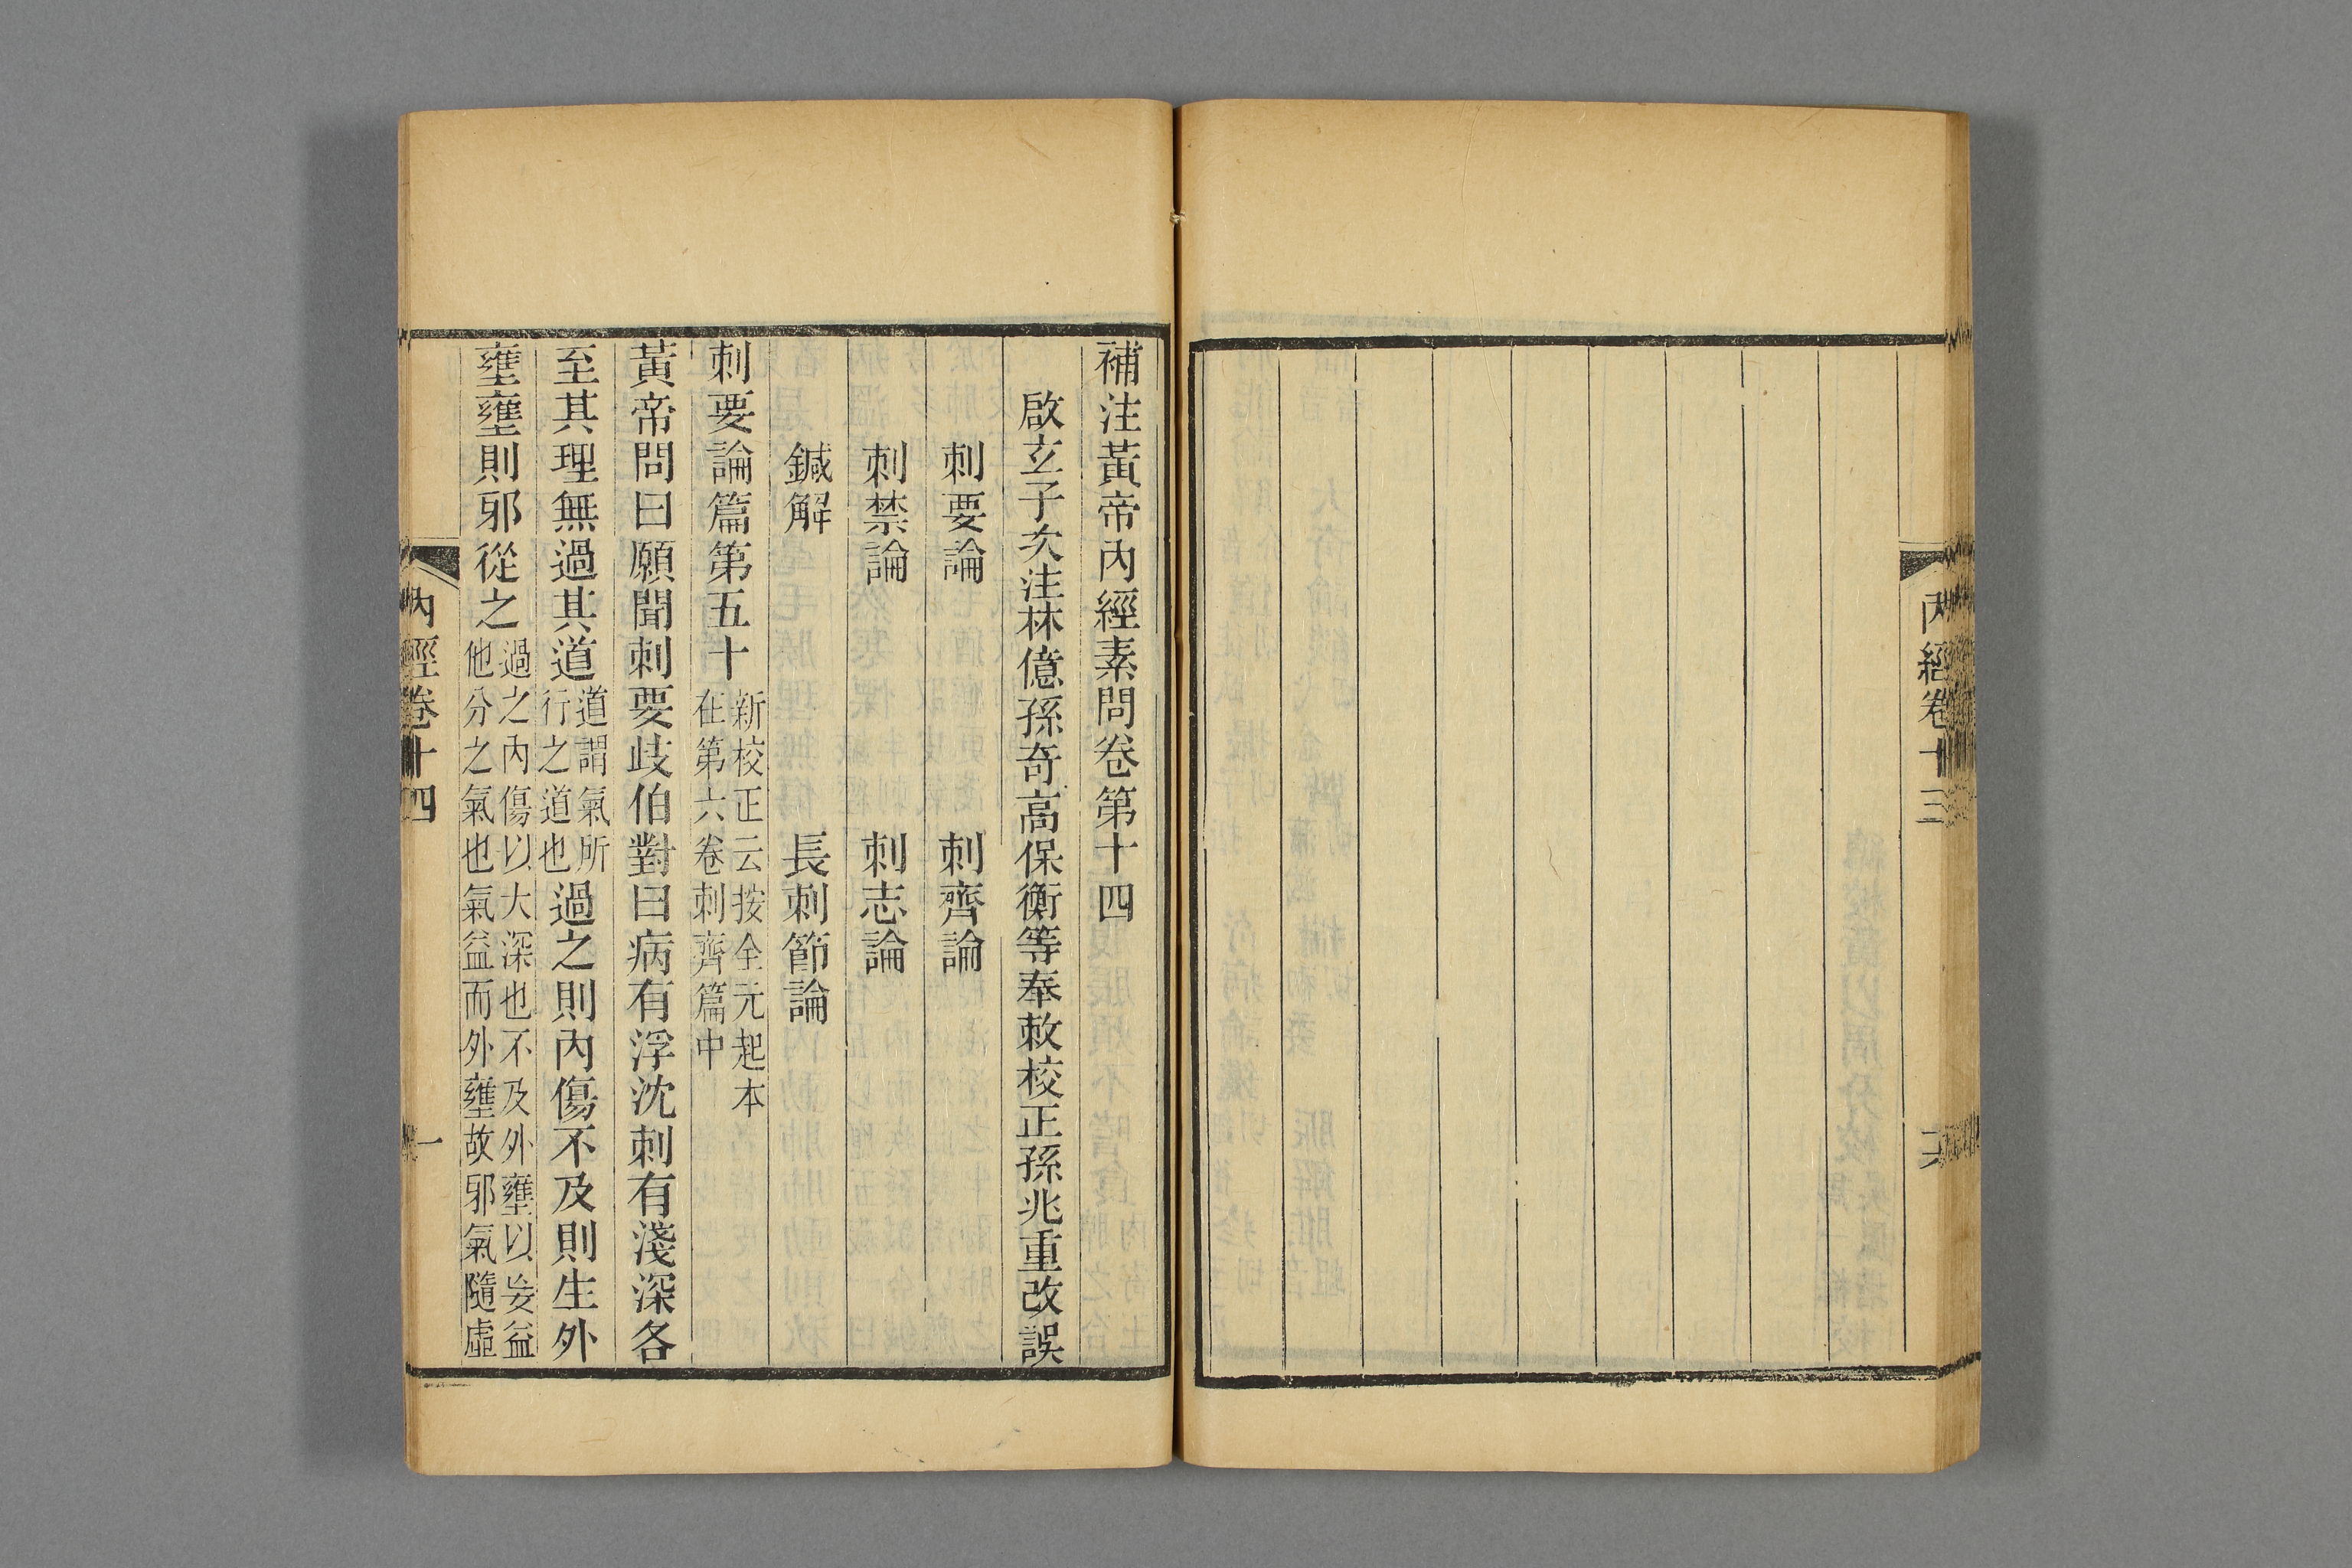 內經卷十三
補注黃帝內經素問卷第十四
啟玄子次注林億孫奇高保衡等奉敕校正孫兆重改誤
刺要論 刺齊論
刺禁論 刺志論
鍼解 長刺節論
刺要論篇第五十 新校正云按全元起本在第六卷刺齊篇中
黃帝問曰願聞刺要歧伯對曰病有浮沈刺有淺深各
至其理無過其道 道謂氣所行之道也 過之則內傷不及則生外
壅壅則邪從之 過之內傷以大深也不及外壅以妄益他分之氣也氣益而外壅故邪氣隨虛
內經卷十四
一